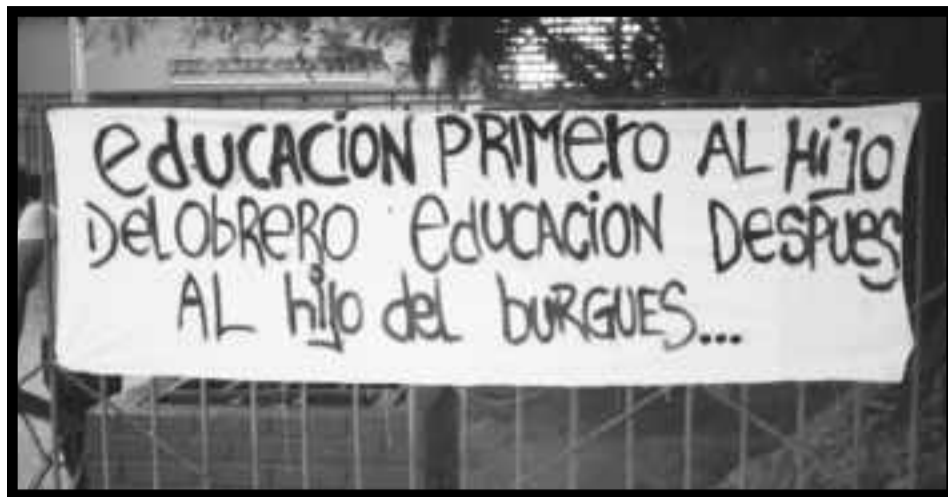 eduCACION PRIMerO AL HijO
DelObReRO EdUCACION DesPUes
AL hijo del buRGUES...